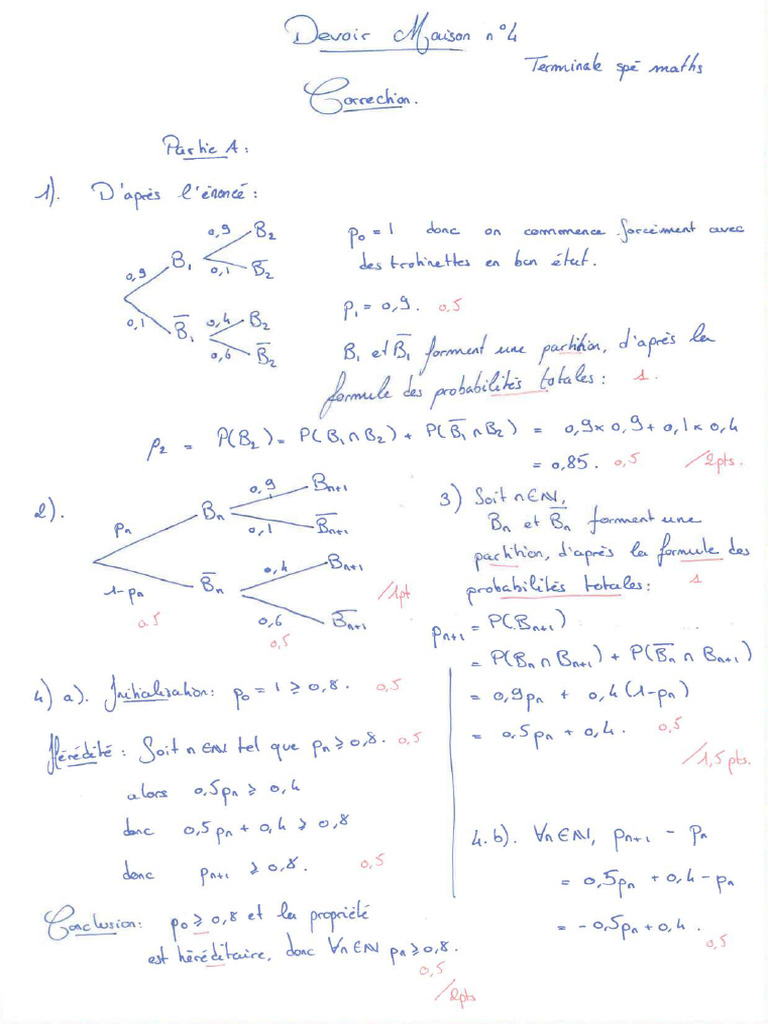 Devoir Maison n°4
Terminale spé maths
Correction.
Partie A :
1). D'après l'énoncé :
0,9 B₁ 0,9 B₂
0,1 B̅₂
0,1 B̅₁ 0,4 B₂
0,6 B̅₂
p₀ = 1 donc on commence forcément avec
des trotinettes en bon état.
p₁ = 0,9. 0,5
B₁ et B̅₁ forment une partition, d'après la
formule des probabilités totales : 1.
p₂ = P(B₂) = P(B₁∩B₂) + P(B̅₁∩B₂) = 0,9×0,9 + 0,1×0,4
= 0,85. 0,5 /2pts.
2).
pₙ Bₙ 0,9 Bₙ₊₁
0,1 B̅ₙ₊₁
1-pₙ B̅ₙ 0,4 Bₙ₊₁
0,6 B̅ₙ₊₁
0,5 0,5 /1pt
3) Soit n∈ℕ,
Bₙ et B̅ₙ forment une
partition, d'après la formule des
probabilités totales : 1
pₙ₊₁ = P(Bₙ₊₁)
= P(Bₙ∩Bₙ₊₁) + P(B̅ₙ∩Bₙ₊₁)
= 0,9pₙ + 0,4(1-pₙ)
= 0,5pₙ + 0,4. 0,5
/1,5 pts.
4) a). Initialisation : p₀ = 1 ⩾ 0,8. 0,5
Hérédité : Soit n∈ℕ tel que pₙ ⩾ 0,8. 0,5
alors 0,5pₙ ⩾ 0,4
donc 0,5pₙ + 0,4 ⩾ 0,8
donc pₙ₊₁ ⩾ 0,8. 0,5
Conclusion : p₀ ⩾ 0,8 et la propriété
est héréditaire, donc ∀n∈ℕ pₙ ⩾ 0,8.
0,5
/2pts
4.b). ∀n∈ℕ, pₙ₊₁ - pₙ
= 0,5pₙ + 0,4 - pₙ
= -0,5pₙ + 0,4.
0,5